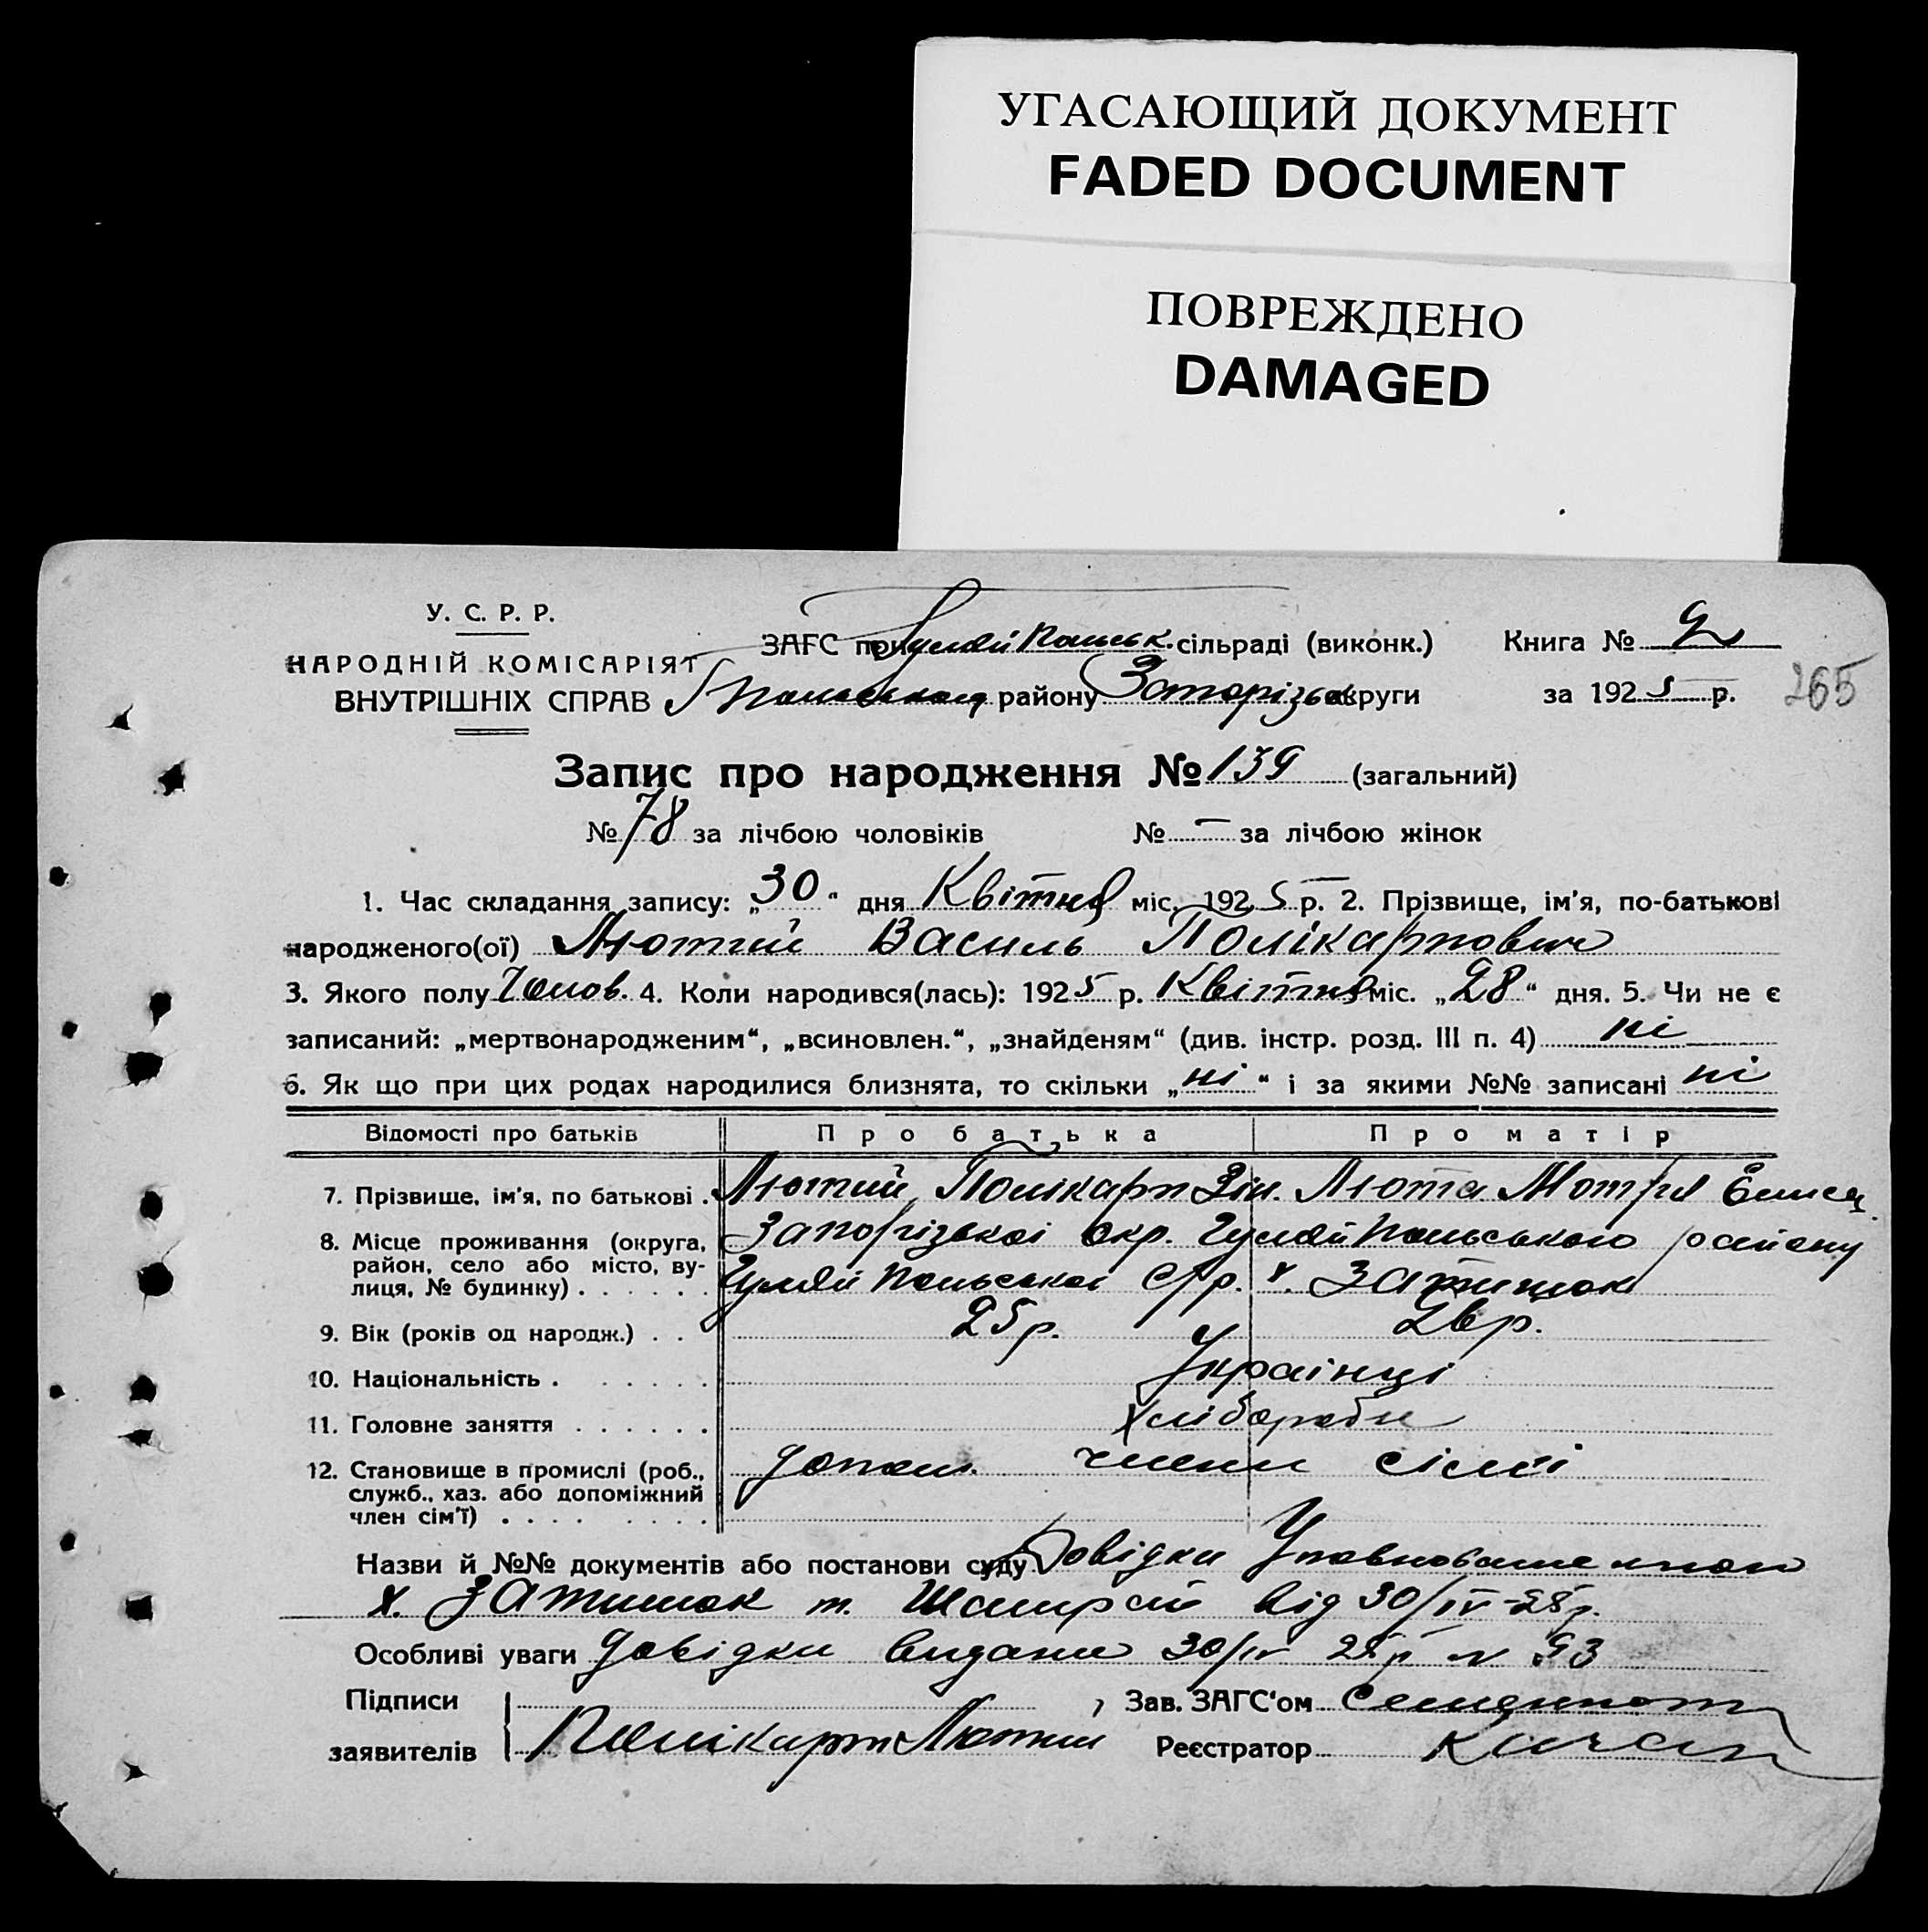 УГАСАЮЩИЙ ДОКУМЕНТ
FADED DOCUMENT
ПОВРЕЖДЕНО
DAMAGED
У. С. Р. Р.
НАРОДНІЙ КОМІСАРІЯТ
ВНУТРІШНІХ СПРАВ
ЗАГС при Гуляй Польськ. сільраді (виконк.)
Г Польського району Запорізьк округи
Книга № 2
за 1925 р.
265
Запис про народження № 139 (загальний)
№ 78 за лічбою чоловіків № — за лічбою жінок
1. Час складання запису: „30“ дня Квітня міс. 1925 р. 2. Прізвище, ім'я, по-батькові
народженого(ої) Лютий Василь Полікарпович
3. Якого полу Чолов. 4. Коли народився(лась): 1925 р. Квітня міс. „28“ дня. 5. Чи не є
записаний: „мертвонародженим“, „всиновлен.“, „знайденям“ (див. інстр. розд. III п. 4) ні
6. Як що при цих родах народилися близнята, то скільки „ні“ і за якими №№ записані ні
Відомості про батьків Про батька Про матір
7. Прізвище, ім'я, по батькові . Лютий Полікарп Зін. Люта Мотря Елисе
8. Місце проживання (округа, Запорізької окр. Гуляйпольського району
район, село або місто, ву-
лиця, № будинку) . . . . . . Гуляй Польської с/р. х. Затишок
9. Вік (років од народж.) . . 25 р. 26 р.
10. Національність . . . . . . Українці
11. Головне заняття . . . . . . Хлібороби
12. Становище в промислі (роб., допом. члени сімї
служб., хаз. або допоміжний
член сім'ї) . . . . . . . . .
Назви й №№ документів або постанови суду Довідки Уповноваже
х. Затишок т. Шамрай від 30/IV-25 р.
Особливі уваги Довідки видане 30/IV 25 р. N 93
Підписи
заявителів Полікарп Лютий
Зав. ЗАГС'ом
Реєстратор